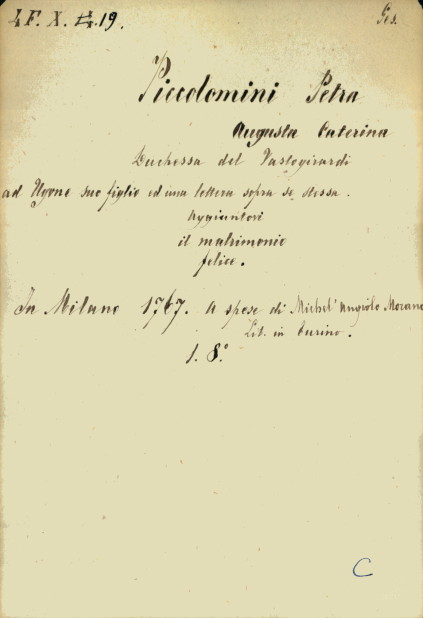 4F. X. 19.
Ges.
Piccolomini Petra
Augusta Caterina
Duchessa del Vastogirardi
ad Ugone suo figlio ed una lettera sopra se stessa.
Aggiuntovi
il matrimonio
felice.
In Milano 1767. A spese di Michel' Angiolo Morano
Lib. in Turino.
1. 8.°
C